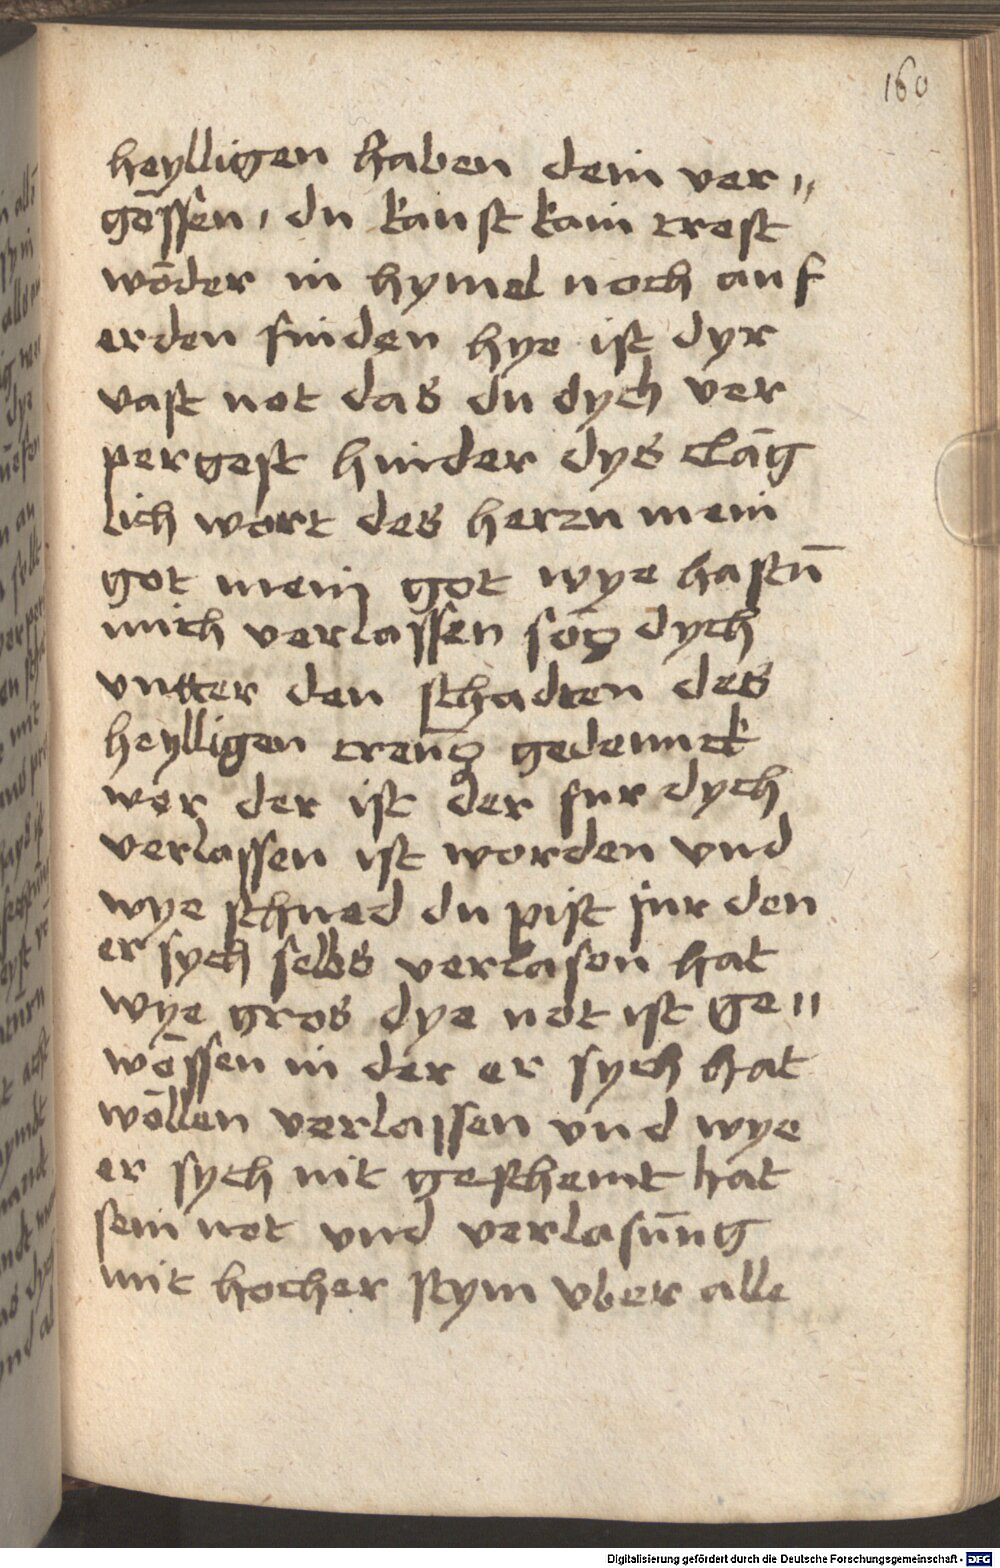 160
heylligen haben dein ver〃
gēssen, du kanst kain trost
wōder in hymel noch auf
erden finden hye ist dyr
vast not das du dych ver
pergest hinder dys clāg
lich wort des herzn mein
got mein got wye hastū
mich verlassen sog dych
vntter den schadten des
heylligen creuꜩ gedennck
wer der ist der fur dych
verlassen ist worden vnd
wye schned du pist fur den
er sych selbs verlasen hat
wye gros dye not ist ge〃
wēssen in der er sych hat
wōllen verlassen vnd wye
er sych nit geschemt hat
sein not vnd verlasūng
mit hocher stym vber alle
Digitalisierung gefördert durch die Deutsche Forschungsgemeinschaft - DFG